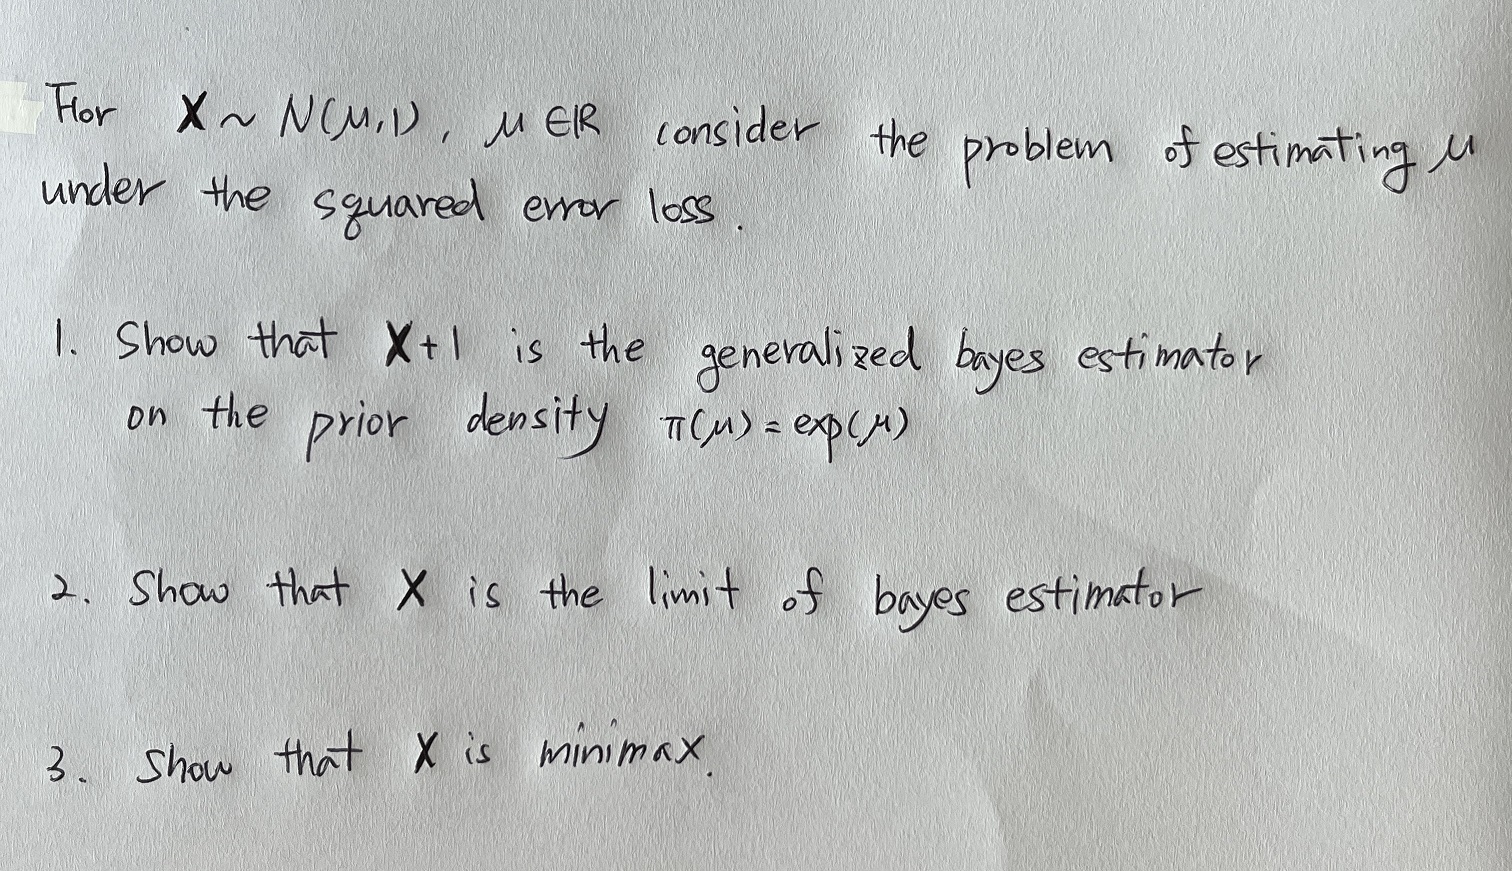 For X ~ N(μ,1), μ ∈ ℝ consider the problem of estimating μ
under the squared error loss.
1. Show that X+1 is the generalized bayes estimator
on the prior density π(μ) = exp(μ)
2. Show that X is the limit of bayes estimator
3. Show that X is minimax.